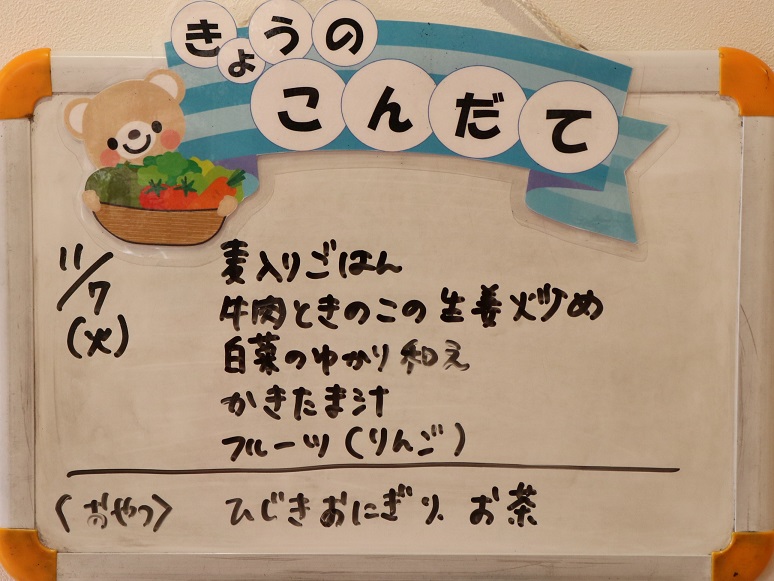 きょうの
こんだて
11/7
(火)
麦入りごはん
牛肉ときのこの生姜炒め
白菜のゆかり和え
かきたま汁
フルーツ(りんご)
〈おやつ〉 ひじきおにぎり、お茶